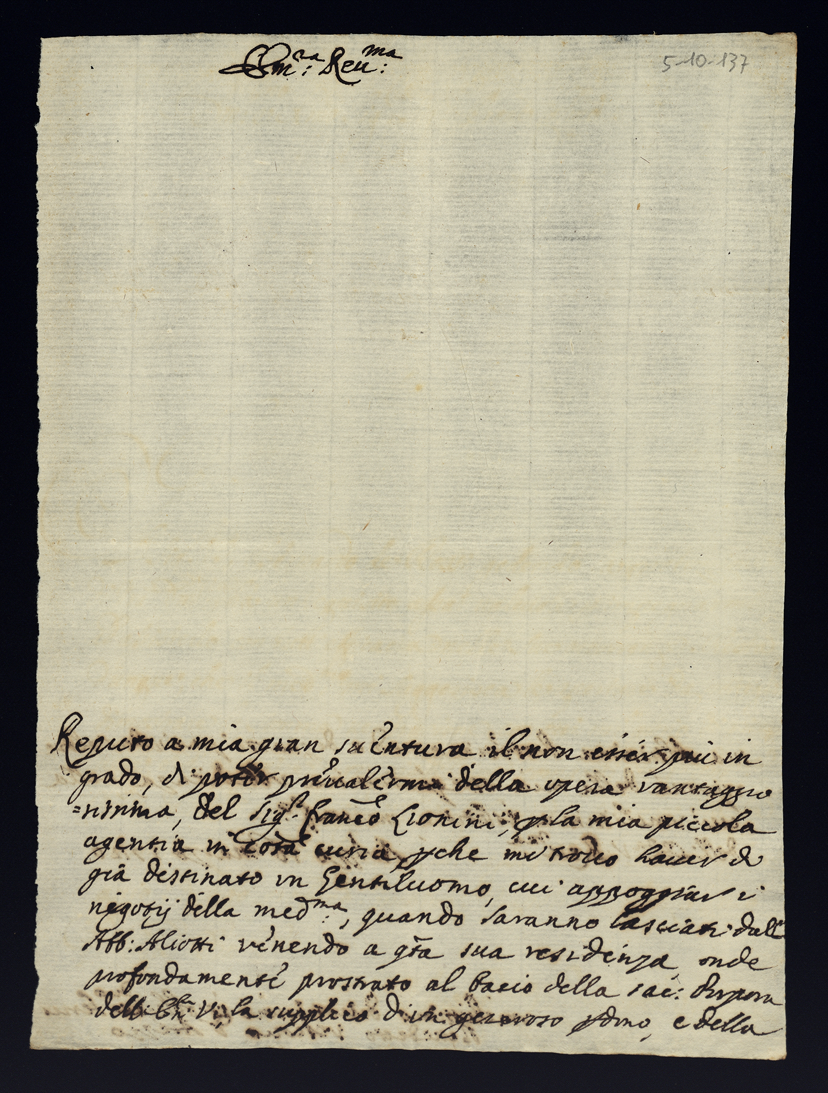 Em:ᵃ Reu:ᵐᵃ
5-10-137
Reputo a mia gran suentura il non esser più in
grado, di poter preualermi della opera vantaggio
=sissima, del Sigʳ Franc̄o Lionini, p̱ la mia piccola
agentia in cotā curia p̱che mi trouo hauer di
già destinato un Gentiluomo, cui appoggiar i
negotij della medᵐᵃ, quando saranno lasciati dall'
Abb: Aliotti venendo a qtā sua residenza onde
profondamente prostrato al bacio della sac: Purpora
dell' V: la supplico d'un generoso p̱dono, e della